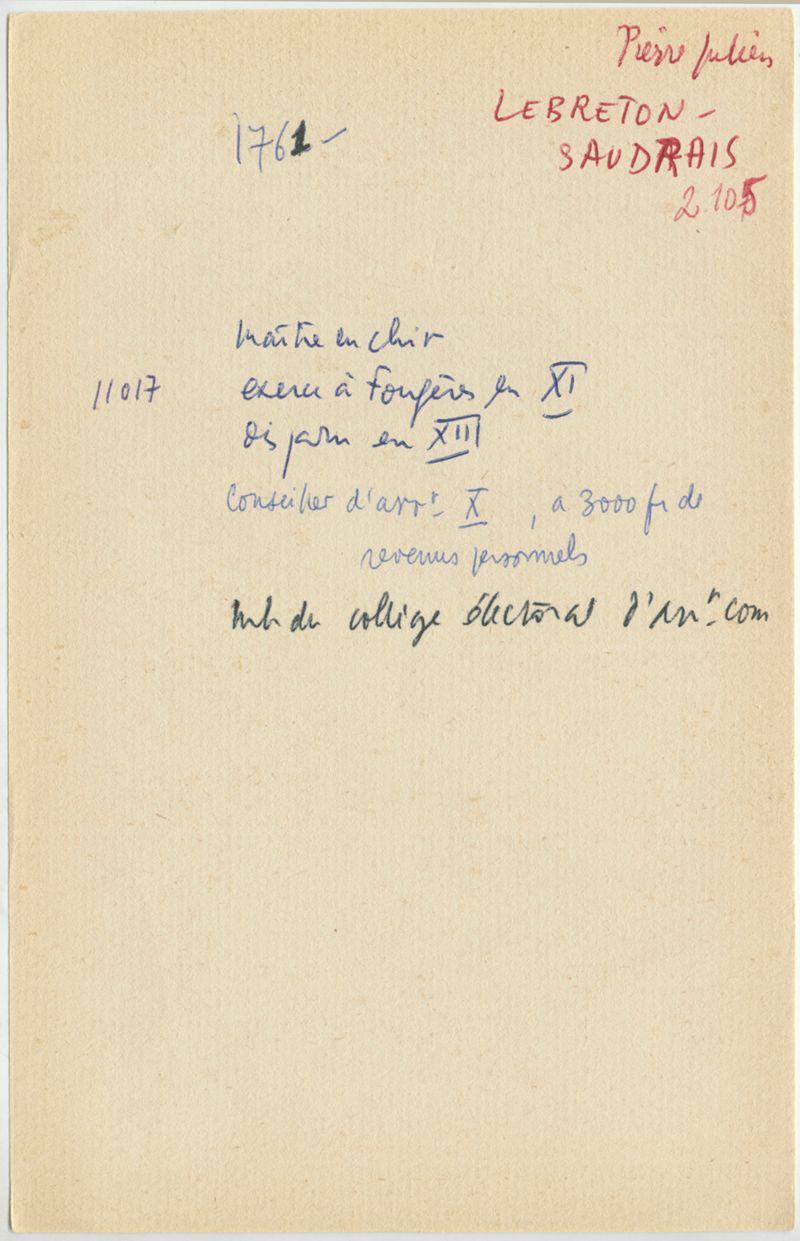 Pierre Julien
LEBRETON-
SAUDRAIS
2.105
1761-
maître en chir
11017 exerce à Fougères en XI
disparu en XIII
Conseiller d'arrt X, a 3000 fr de
revenus personnels
mb du collège électoral d'arrt com